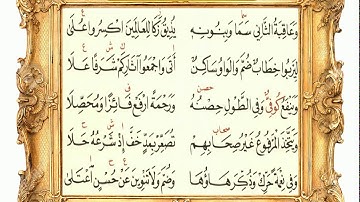 وَعَاقِبَةُ الثَّانِي سَمَا وَبِنُونِهِ يُذِيقُ زَكَا لِلْعَالَمِينَ اكْسِرُوا عُلَى
لِيَرْبُوا خِطَابٌ ضُمَّ وَالْوَاوُ سَاكِنٌ أَتَى وَاجْمَعُوا آثَارِ كَمْ شَرَفًا عَلَا
وَيَنْفَعُ كُوفِيٌّ وَفِي الطَّوْلِ حِصْنُهُ وَرَحْمَةً ارْفَعْ فَائِزًا وَمُحَصِّلَا
وَيَتَّخِذَ الْمَرْفُوعُ غَيْرُ صِحَابِهِمْ تُصَعِّرْ بِمَدٍّ خَفَّ إِذْ شَرْعُهُ حَلَا
وَفِي نِعْمَةً حَرِّكْ وَذُكِّرَ هَاؤُهَا وَضُمَّ وَلَا تَنْوِينَ عَنْ حُسْنٍ اعْتَلَى